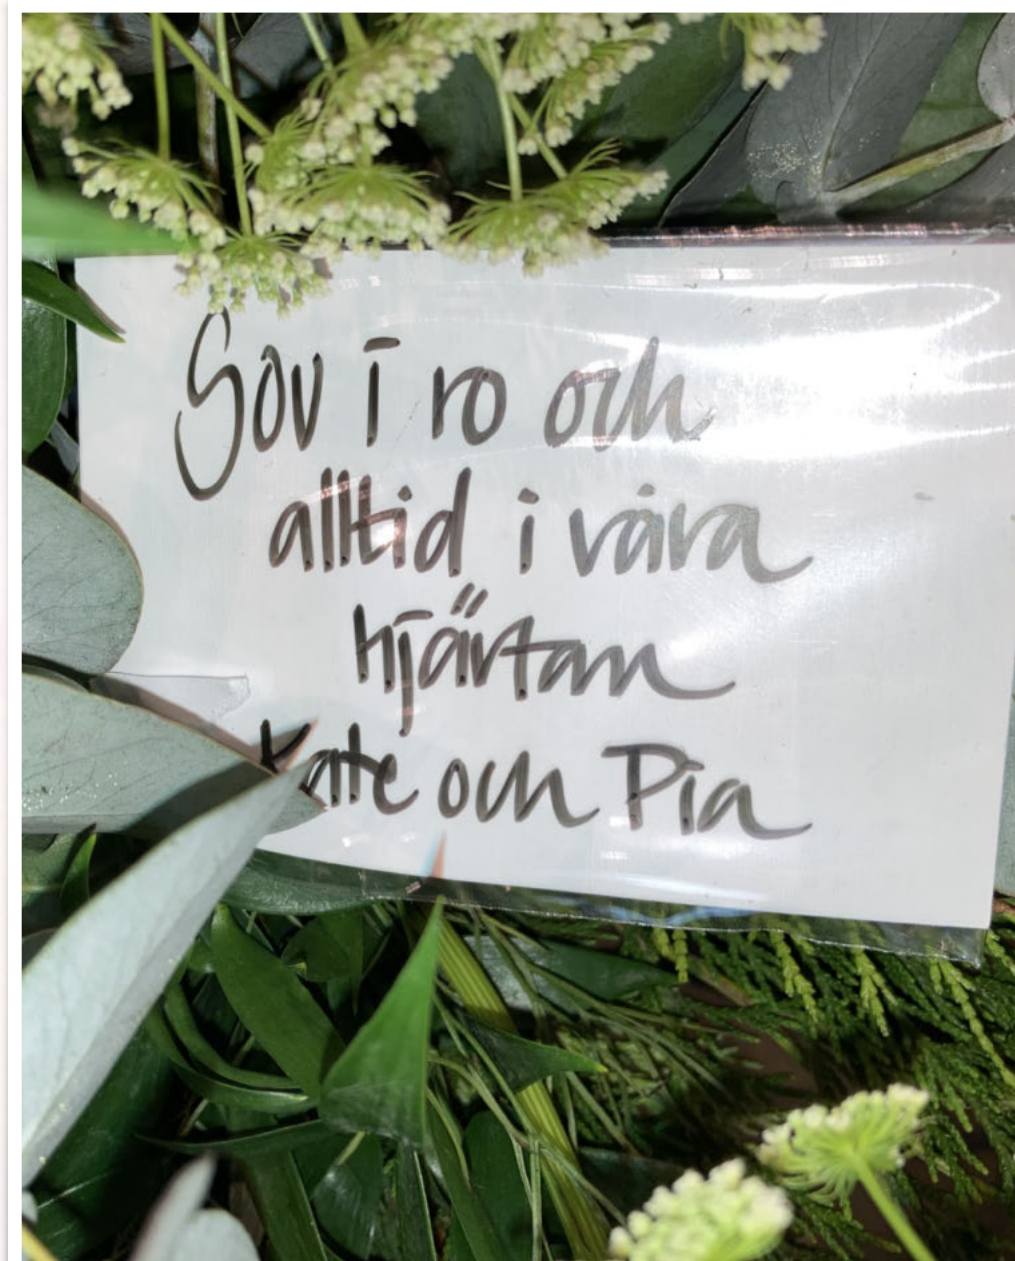 Sov i ro och
alltid i våra
hjärtan
Kate och Pia